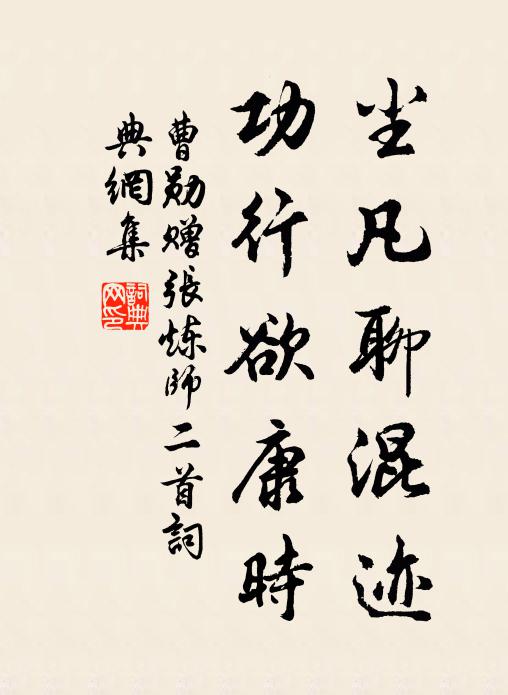 尘凡聊混迹
功行欲康時
曹勋赠張炼師二首詞
典網集
詞典
网印